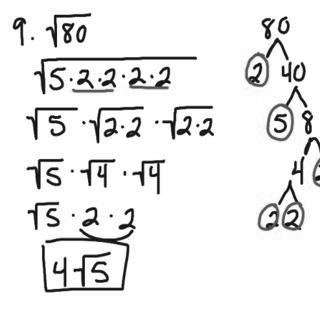 9. √80
√5·2·2·2·2
√5 · √2·2 · √2·2
√5 · √4 · √4
√5 · 2 · 2
4√5
80
2 40
5 8
4 2
2 2